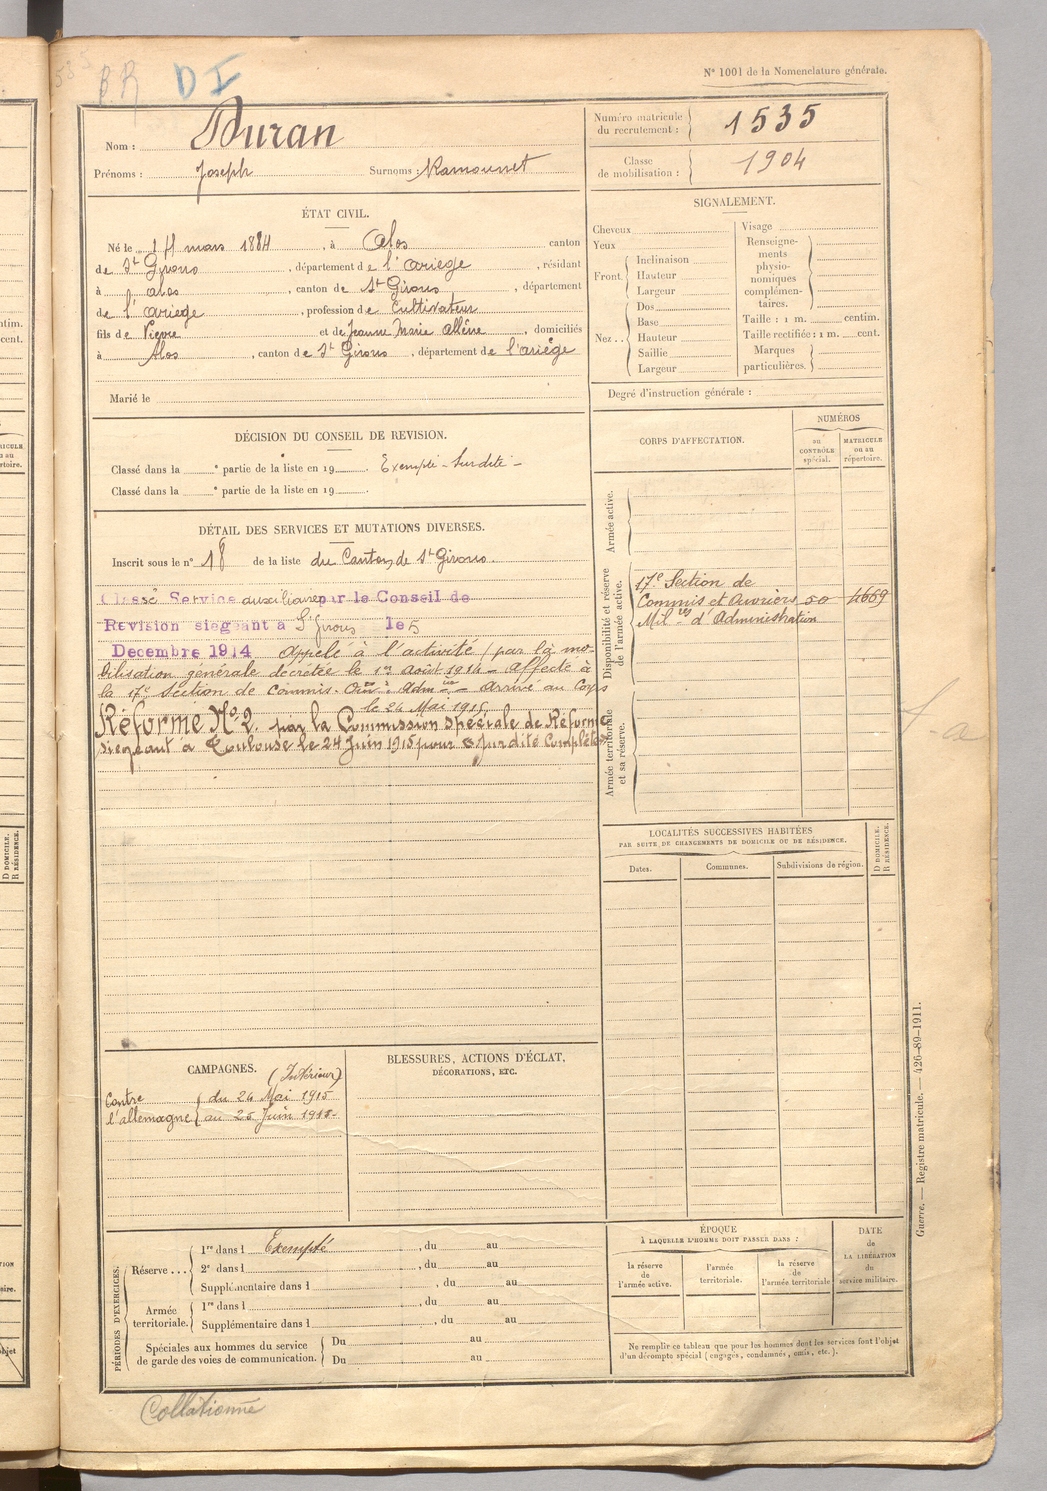 B.R D I
N° 1001 de la Nomenclature générale.
Nom : Duran
Prénoms : Joseph Surnoms : Ramounet
Numéro matricule du recrutement : 1535
Classe de mobilisation : 1904
ÉTAT CIVIL.
Né le 14 mars 1884, à Alos canton
de St Girons, département de l'Ariège, résidant
à Alos, canton de St Girons, département
de l'Ariège, profession de Cultivateur
fils de Pierre et de Jeanne Marie Allène, domiciliés
à Alos, canton de St Girons, département de l'Ariège
Marié le
SIGNALEMENT.
Cheveux
Yeux
Front. Inclinaison
Hauteur
Largeur
Nez.. Dos
Base
Hauteur
Saillie
Largeur
Visage
Renseigne-
ments
physio-
nomiques
complémen-
taires.
Taille : 1 m. centim.
Taille rectifiée : 1 m. cent.
Marques
particulières.
Degré d'instruction générale :
DÉCISION DU CONSEIL DE REVISION.
Classé dans la e partie de la liste en 19 . Exempté - Surdité -
Classé dans la e partie de la liste en 19 .
DÉTAIL DES SERVICES ET MUTATIONS DIVERSES.
Inscrit sous le n° 18 de la liste du Canton de St Girons.
Classé Service auxiliaire par le Conseil de
Revision siegeant à St Girons le 5
Decembre 1914 Appelé à l'activité (par la mo-
bilisation générale décrétée le 1er Août 1914 - Affecté à
la 17e Section de Commis. Ouers Admon - Arrivé au Corps
le 24 Mai 1915
Réformé No 2. par la Commission spéciale de Réforme
siégeant à Toulouse le 24 Juin 1915 pour Surdité Complète
CORPS D'AFFECTATION.
NUMÉROS
au
CONTRÔLE
spécial.
MATRICULE
ou au
répertoire.
Armée active.
Disponibilité et réserve
de l'armée active.
17e Section de
Commis et Ouvriers 50 4669
Milres d'Administration
Armée territoriale
et sa réserve.
LOCALITÉS SUCCESSIVES HABITÉES
PAR SUITE DE CHANGEMENTS DE DOMICILE OU DE RÉSIDENCE.
Dates.
Communes.
Subdivisions de région.
D DOMICILE.
R RÉSIDENCE.
CAMPAGNES.
(Intérieur)
Contre du 24 Mai 1915
l'allemagne au 25 Juin 1915-
BLESSURES, ACTIONS D'ÉCLAT,
DÉCORATIONS, ETC.
PÉRIODES D'EXERCICES.
Réserve... 1re dans l Exempté, du au
2e dans l , du au
Supplémentaire dans l , du au
Armée territoriale. 1re dans l , du au
Supplémentaire dans l , du au
Spéciales aux hommes du service
de garde des voies de communication.
Du au
Du au
ÉPOQUE
À LAQUELLE L'HOMME DOIT PASSER DANS :
la réserve
de
l'armée active.
l'armée
territoriale.
la réserve
de
l'armée territoriale
DATE
de
LA LIBÉRATION
du
service militaire.
Ne remplir ce tableau que pour les hommes dont les services font l'objet
d'un décompte spécial (engagés, condamnés, omis, etc.).
Guerre. — Registre matricule. — 426-89-1911.
Collationné